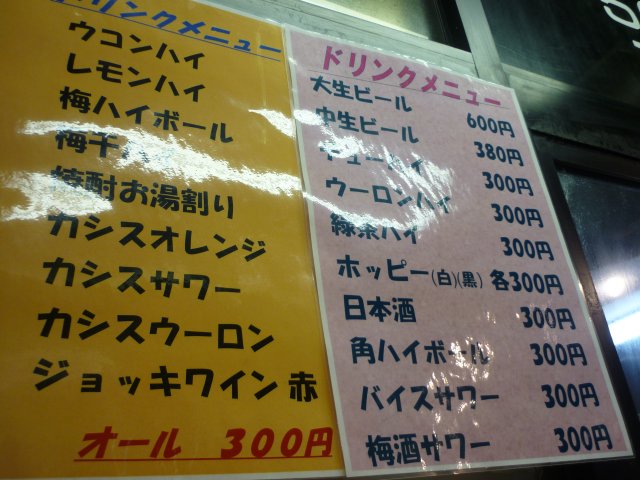 ドリンクメニュー
ウコンハイ
レモンハイ
梅ハイボール
梅干ハイ
焼酎お湯割り
カシスオレンジ
カシスサワー
カシスウーロン
ジョッキワイン 赤
オール 300円
ドリンクメニュー
大生ビール 600円
中生ビール 380円
チューハイ 300円
ウーロンハイ 300円
緑茶ハイ 300円
ホッピー(白)(黒) 各300円
日本酒 300円
角ハイボール 300円
バイスサワー 300円
梅酒サワー 300円